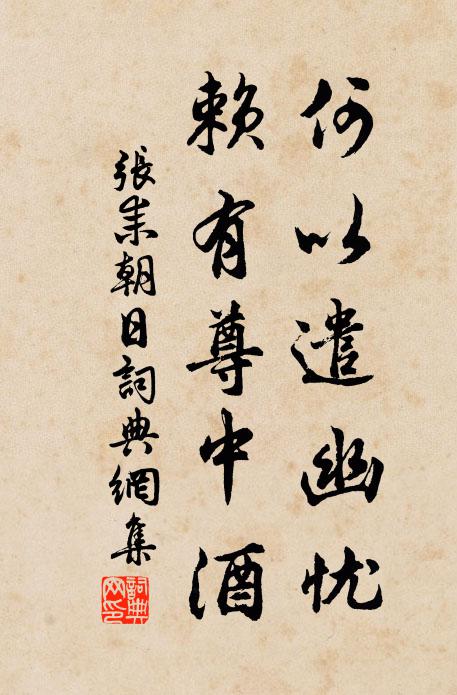 何以遣幽忧
赖有尊中酒
張耒朝日詞典網集
詞典网印